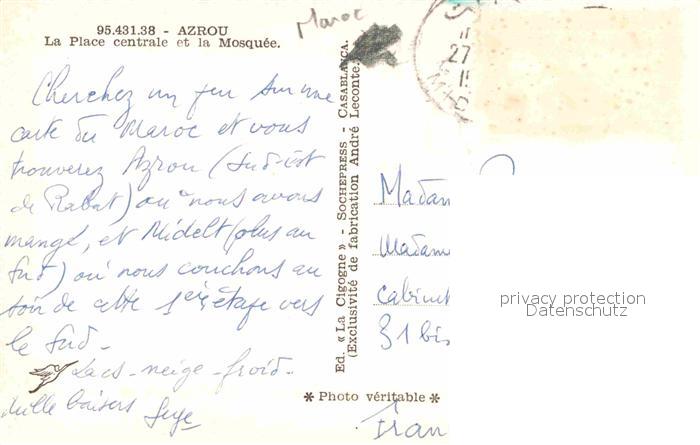 95.431.38 - AZROU
La Place centrale et la Mosquée.
Maroc
Cherchez un peu sur une
carte du Maroc et vous
trouverez Azrou (sud-est
de Rabat) où nous avons
mangé, et Midelt (plus au
sud) où nous couchons au
soir de cette 1ère étape vers
le sud -
Lacs - neige - froid -
mille baisers
Ed. « La Cigogne » - SOCHEPRESS - CASABLANCA.
(Exclusivité de fabrication André Leconte.)
27
Madam
Madam
cabinet
31 bis
privacy protection
Datenschutz
* Photo véritable *
Fran